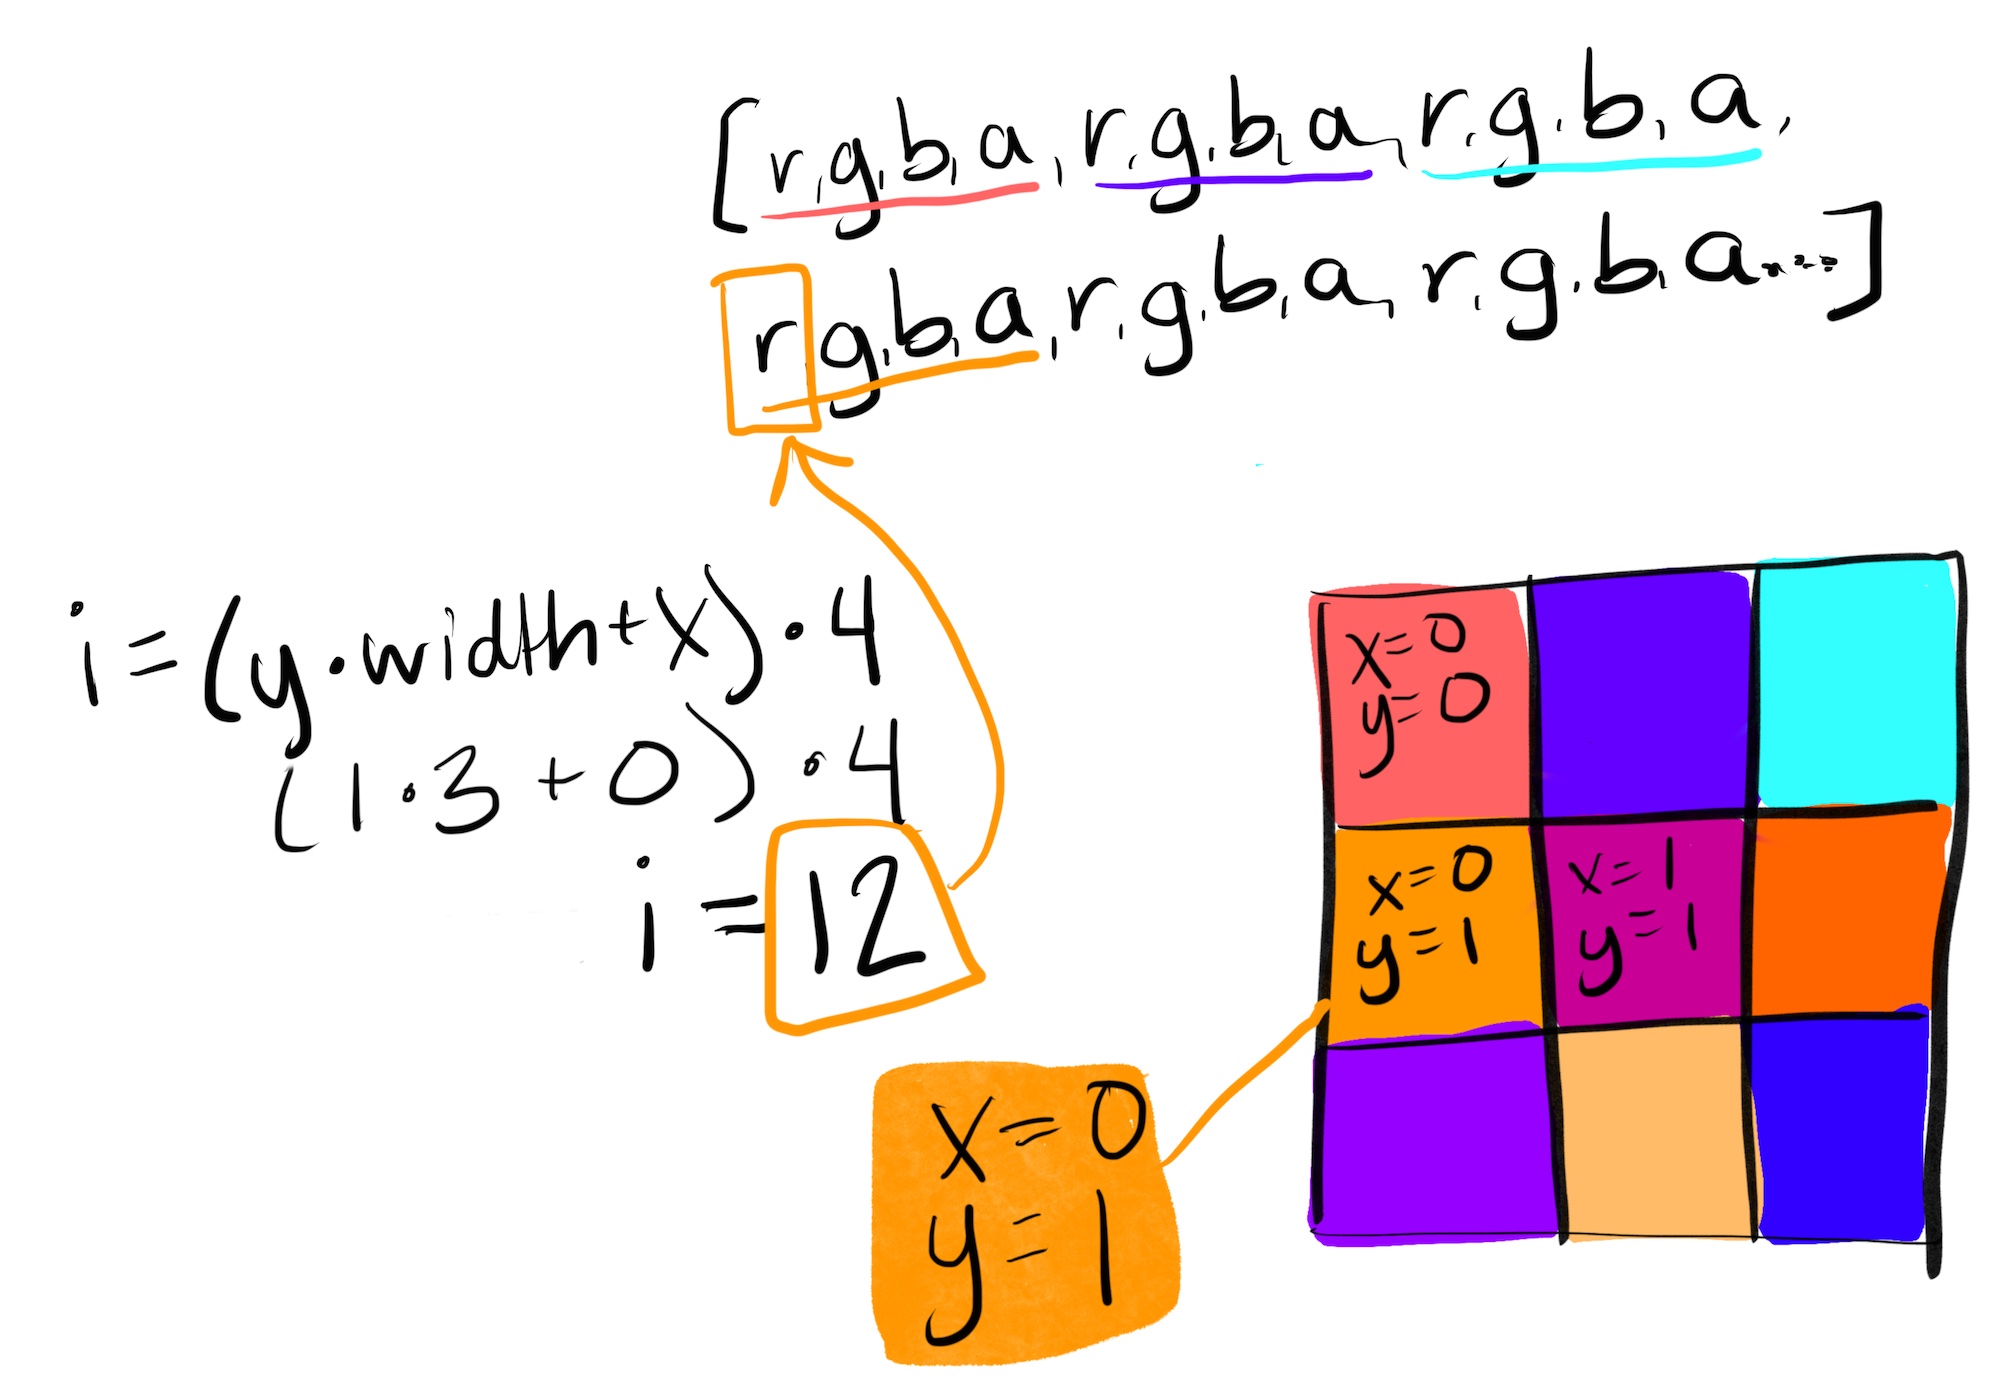 [r,g,b,a,r,g,b,a,r,g,b,a,
r,g,b,a,r,g,b,a,r,g,b,a....]
i=(y·width+x)·4
(1·3+0)·4
i=12
x=0
y=0
x=0
y=1
x=1
y=1
x=0
y=1